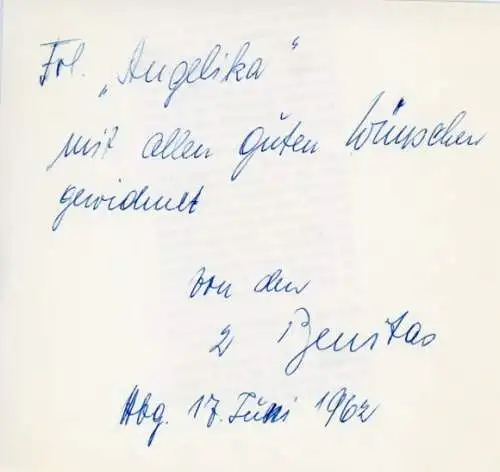 Frl. „Angelika“
mit allen guten Wünschen
gewidmet
von den
2 Benitas
Hbg. 17. Juni 1962